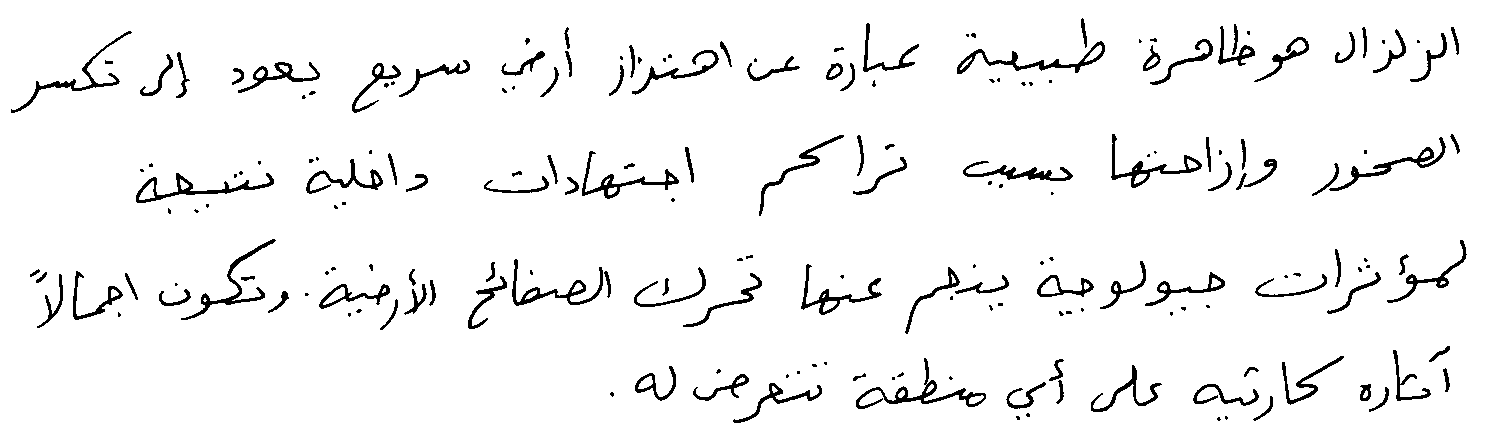 الزلزال هو ظاهرة طبيعية عبارة عن اهتزاز أرضي سريع يعود إلى تكسر
الصخور وإزاحتها بسبب تراكم اجتهادات داخلية نتيجة
لمؤثرات جيولوجية ينجم عنها تحرك الصفائح الأرضية. وتكون اجمالاً
آثاره كارثيه على أي منطقة تتعرض له.